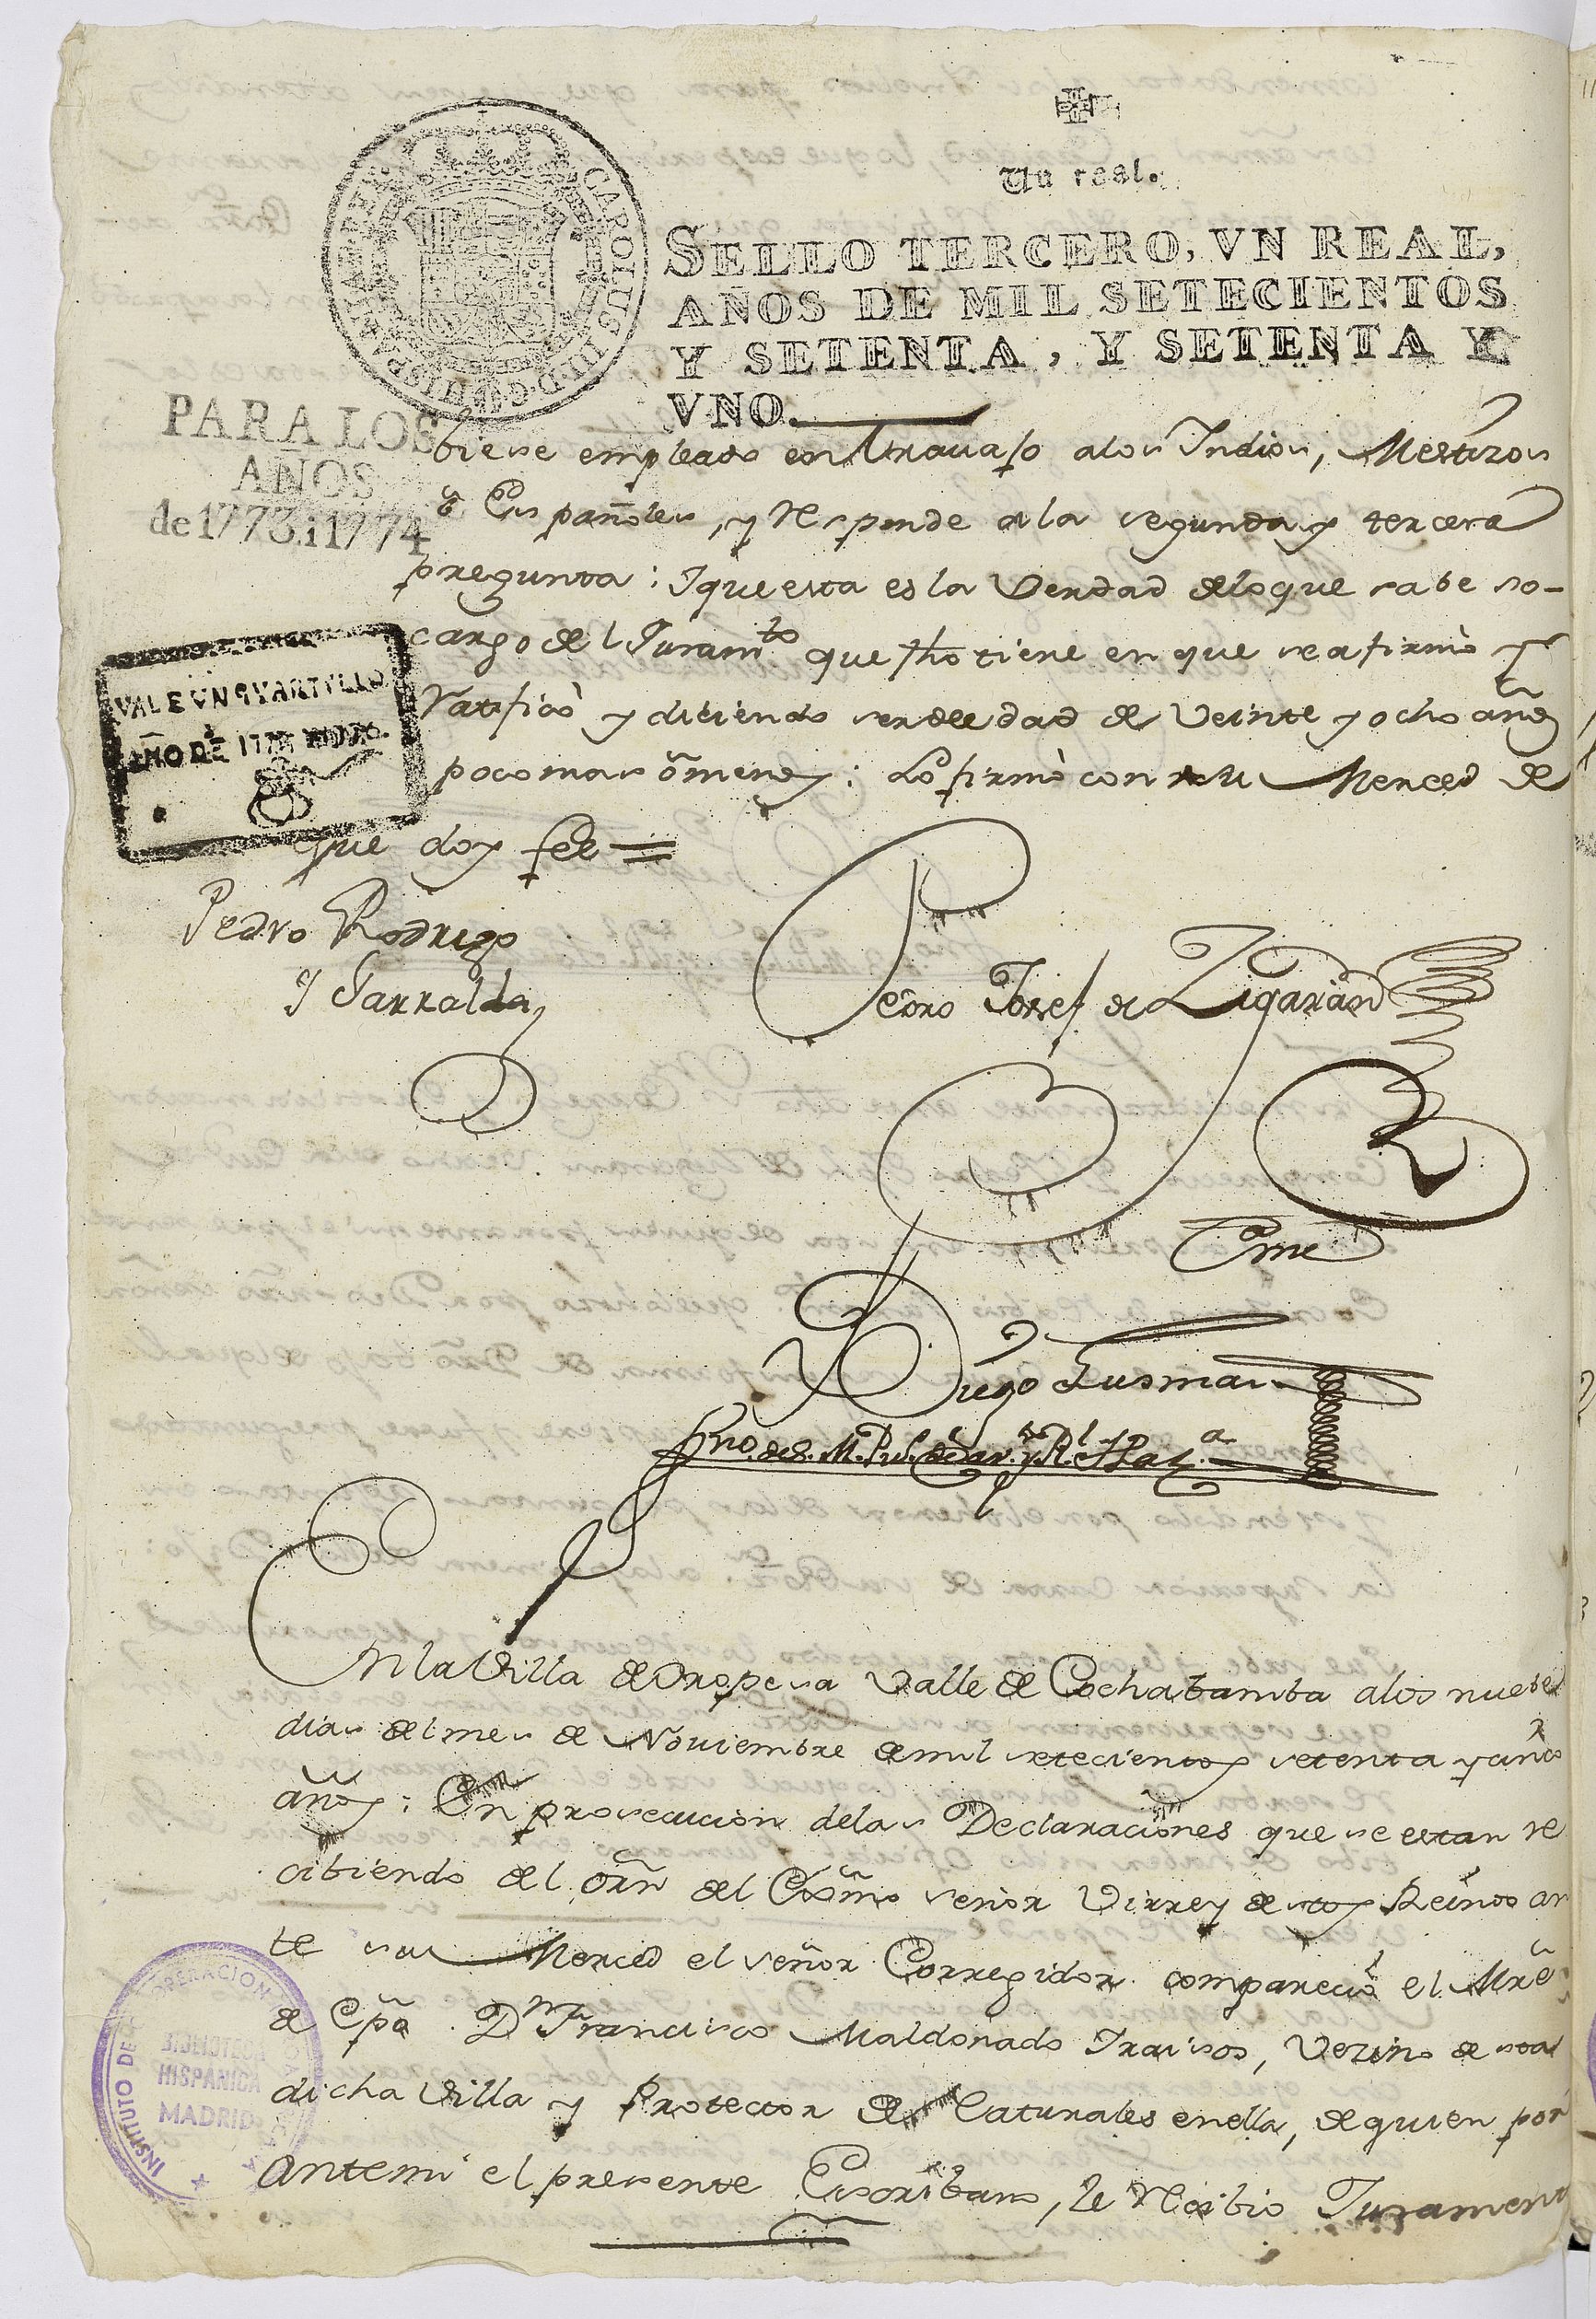 Un real.
SELLO TERCERO, VN REAL,
AÑOS DE MIL SETECIENTOS
Y SETENTA, Y SETENTA Y
VNO.
CAROLUS III D. G. HISPANIAR
PARA LOS
AÑOS
de 1773. i 1774
VALE VN QVARTILLO
AÑO DE
biese empleado en travajo alos Indios, Mestizos
ô Españoles, y Responde ala segunda y tercera
pregunta: Iqueesta es la Verdad deloque sabe so-
cargo del Juramto que fho tiene en que se afirmò y
Ratificò y diciendo ser de edad de Veinte y ocho añs
poco mas ô menos: Lo firmò con su Merced de
que doy fee =
Pedro Rodrigo
y Garralda
Pedro Josef de
Ante mi
Diego Gusman
En la Villa de Oropesa Valle de Cochabamba alos nuebe
dias del mes de Noviembre de mil setecientos setenta y cinco
años: En prosecucion delas Declaraciones que se estan re
cibiendo del orñ del Exmo señor Virrey de estos Reinos an
te su Merced el señor Corregidor compareciò el Mrẽ
de Cpõ Dn Francisco Maldonado Traisos, Vezino de esta
dicha Villa y Protector de Naturales en ella, de quien por
Antemi el presente Escribano, le Recibio Jurament
INSTITUTO DE COOPERACION
BIBLIOTECA
HISPANICA
MADRID